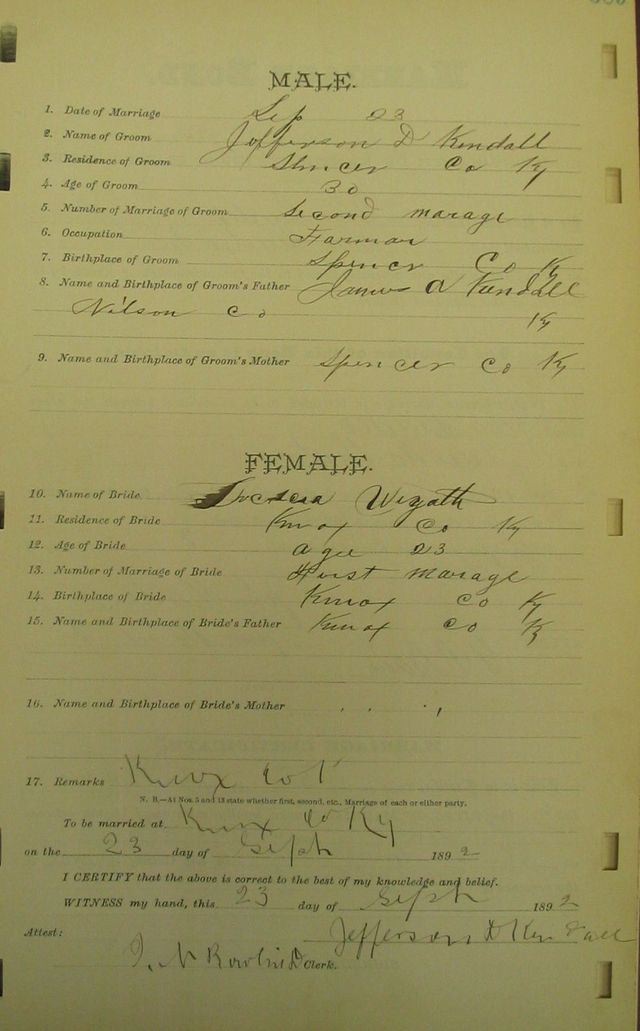 MALE.
1. Date of Marriage Sep 23
2. Name of Groom Jefferson D Kendall
3. Residence of Groom Spncer Co Ky
4. Age of Groom 30
5. Number of Marriage of Groom Second marage
6. Occupation Farmar
7. Birthplace of Groom Spencer Co Ky
8. Name and Birthplace of Groom's Father James A Kendall
Nilson Co Ky
9. Name and Birthplace of Groom's Mother Spencer Co Ky
FEMALE.
10. Name of Bride
11. Residence of Bride Knox Co Ky
12. Age of Bride age 23
13. Number of Marriage of Bride Hirst marage
14. Birthplace of Bride Knox Co Ky
15. Name and Birthplace of Bride's Father Knox Co Ky
16. Name and Birthplace of Bride's Mother , , ,
17. Remarks Knox Co
N. B.—At Nos. 5 and 13 state whether first, second, etc., Marriage of each or either party.
To be married at Knox Co Ky
on the 23 day of Seph 1892
I CERTIFY that the above is correct to the best of my knowledge and belief.
WITNESS my hand, this 23 day of Seph 1892
Attest: Jefferson D Kendall
Clerk.